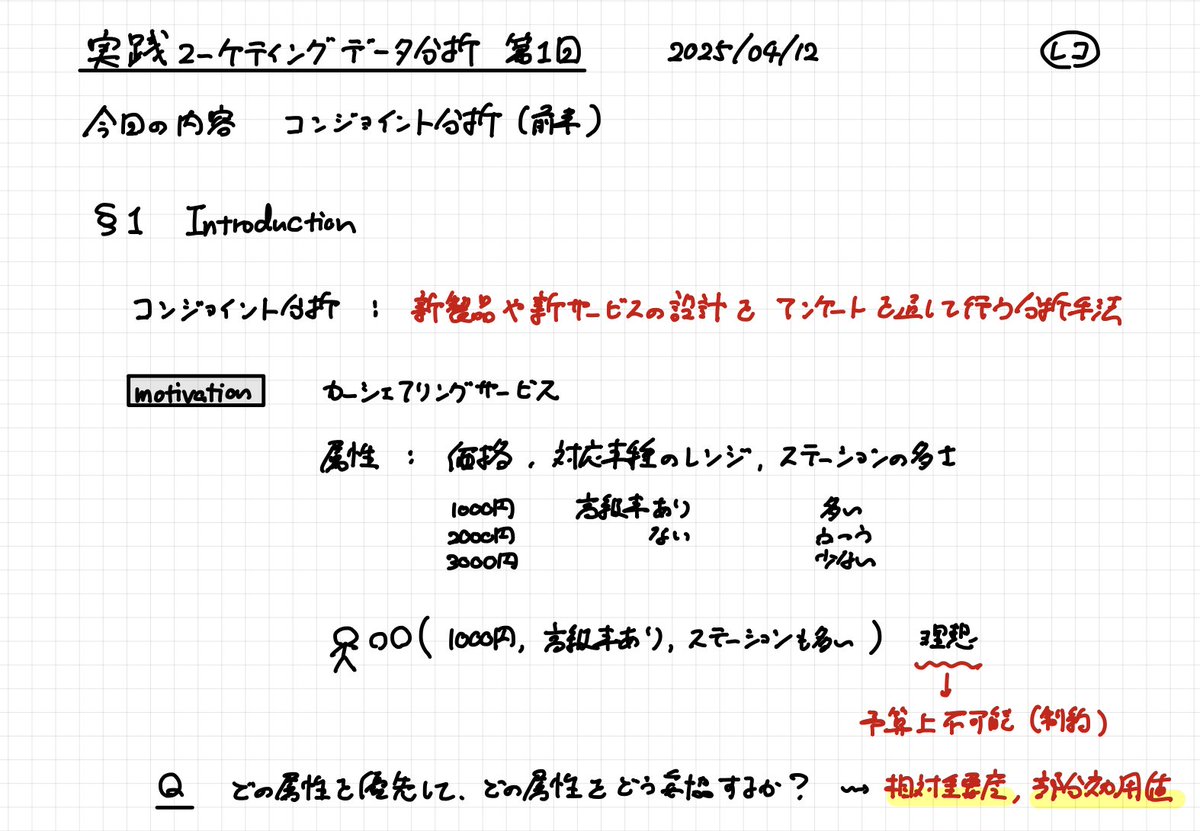 実践マーケティングデータ分析 第1回 2025/04/12 レコ
今回の内容 コンジョイント分析(前半)
§1 Introduction
コンジョイント分析 : 新製品や新サービスの設計を アンケートを通して行う分析手法
motivation カーシェアリングサービス
属性 : 価格, 対応車種のレンジ, ステーションの多さ
1000円 高級車あり 多い
2000円 ない ふつう
3000円 少ない
(1000円, 高級車あり, ステーションも多い) 理想
↓
予算上不可能(制約)
Q どの属性を優先して、どの属性をどう妥協するか? ⇝ 相対重要度, 部分効用値